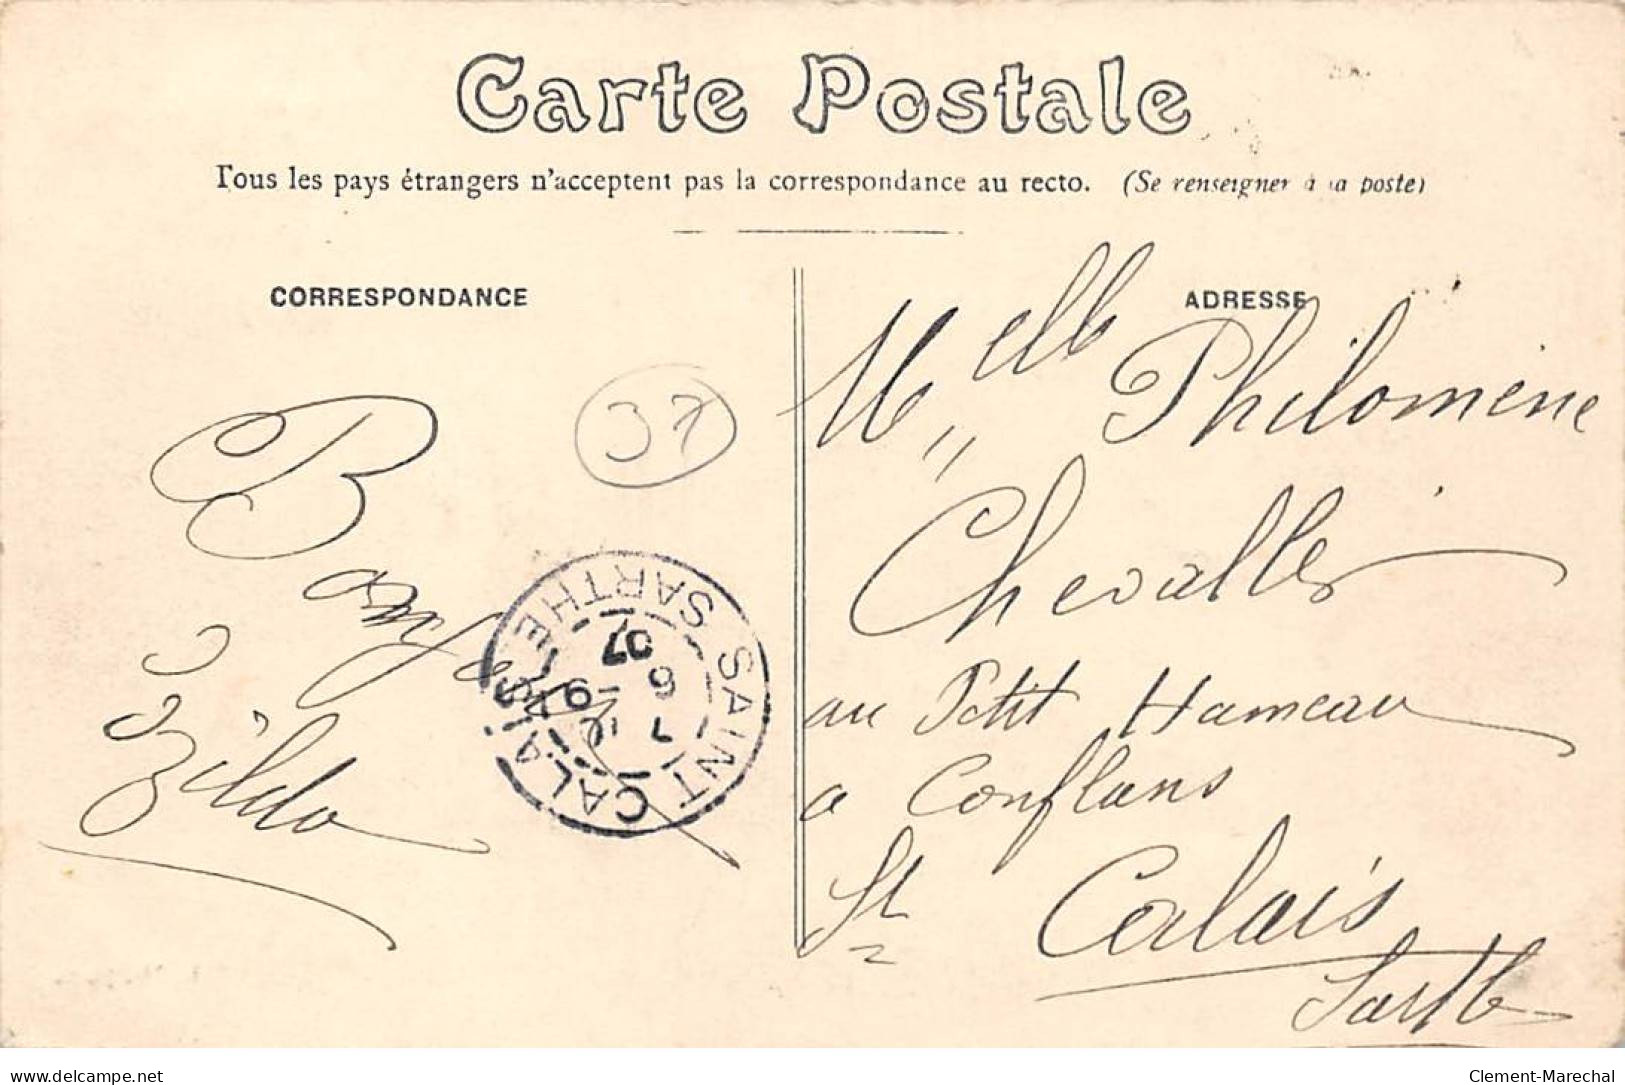 Carte Postale
Tous les pays étrangers n'acceptent pas la correspondance au recto. (Se renseigner à la poste)
CORRESPONDANCE
ADRESSE
37
Melle Philomène
Chevallier
au Petit Hameau
a Conflans
St Calais
Sarthe
Zilda
SAINT CALAIS
SARTHE
7
6
07
www.delcampe.net
Clement-Marechal